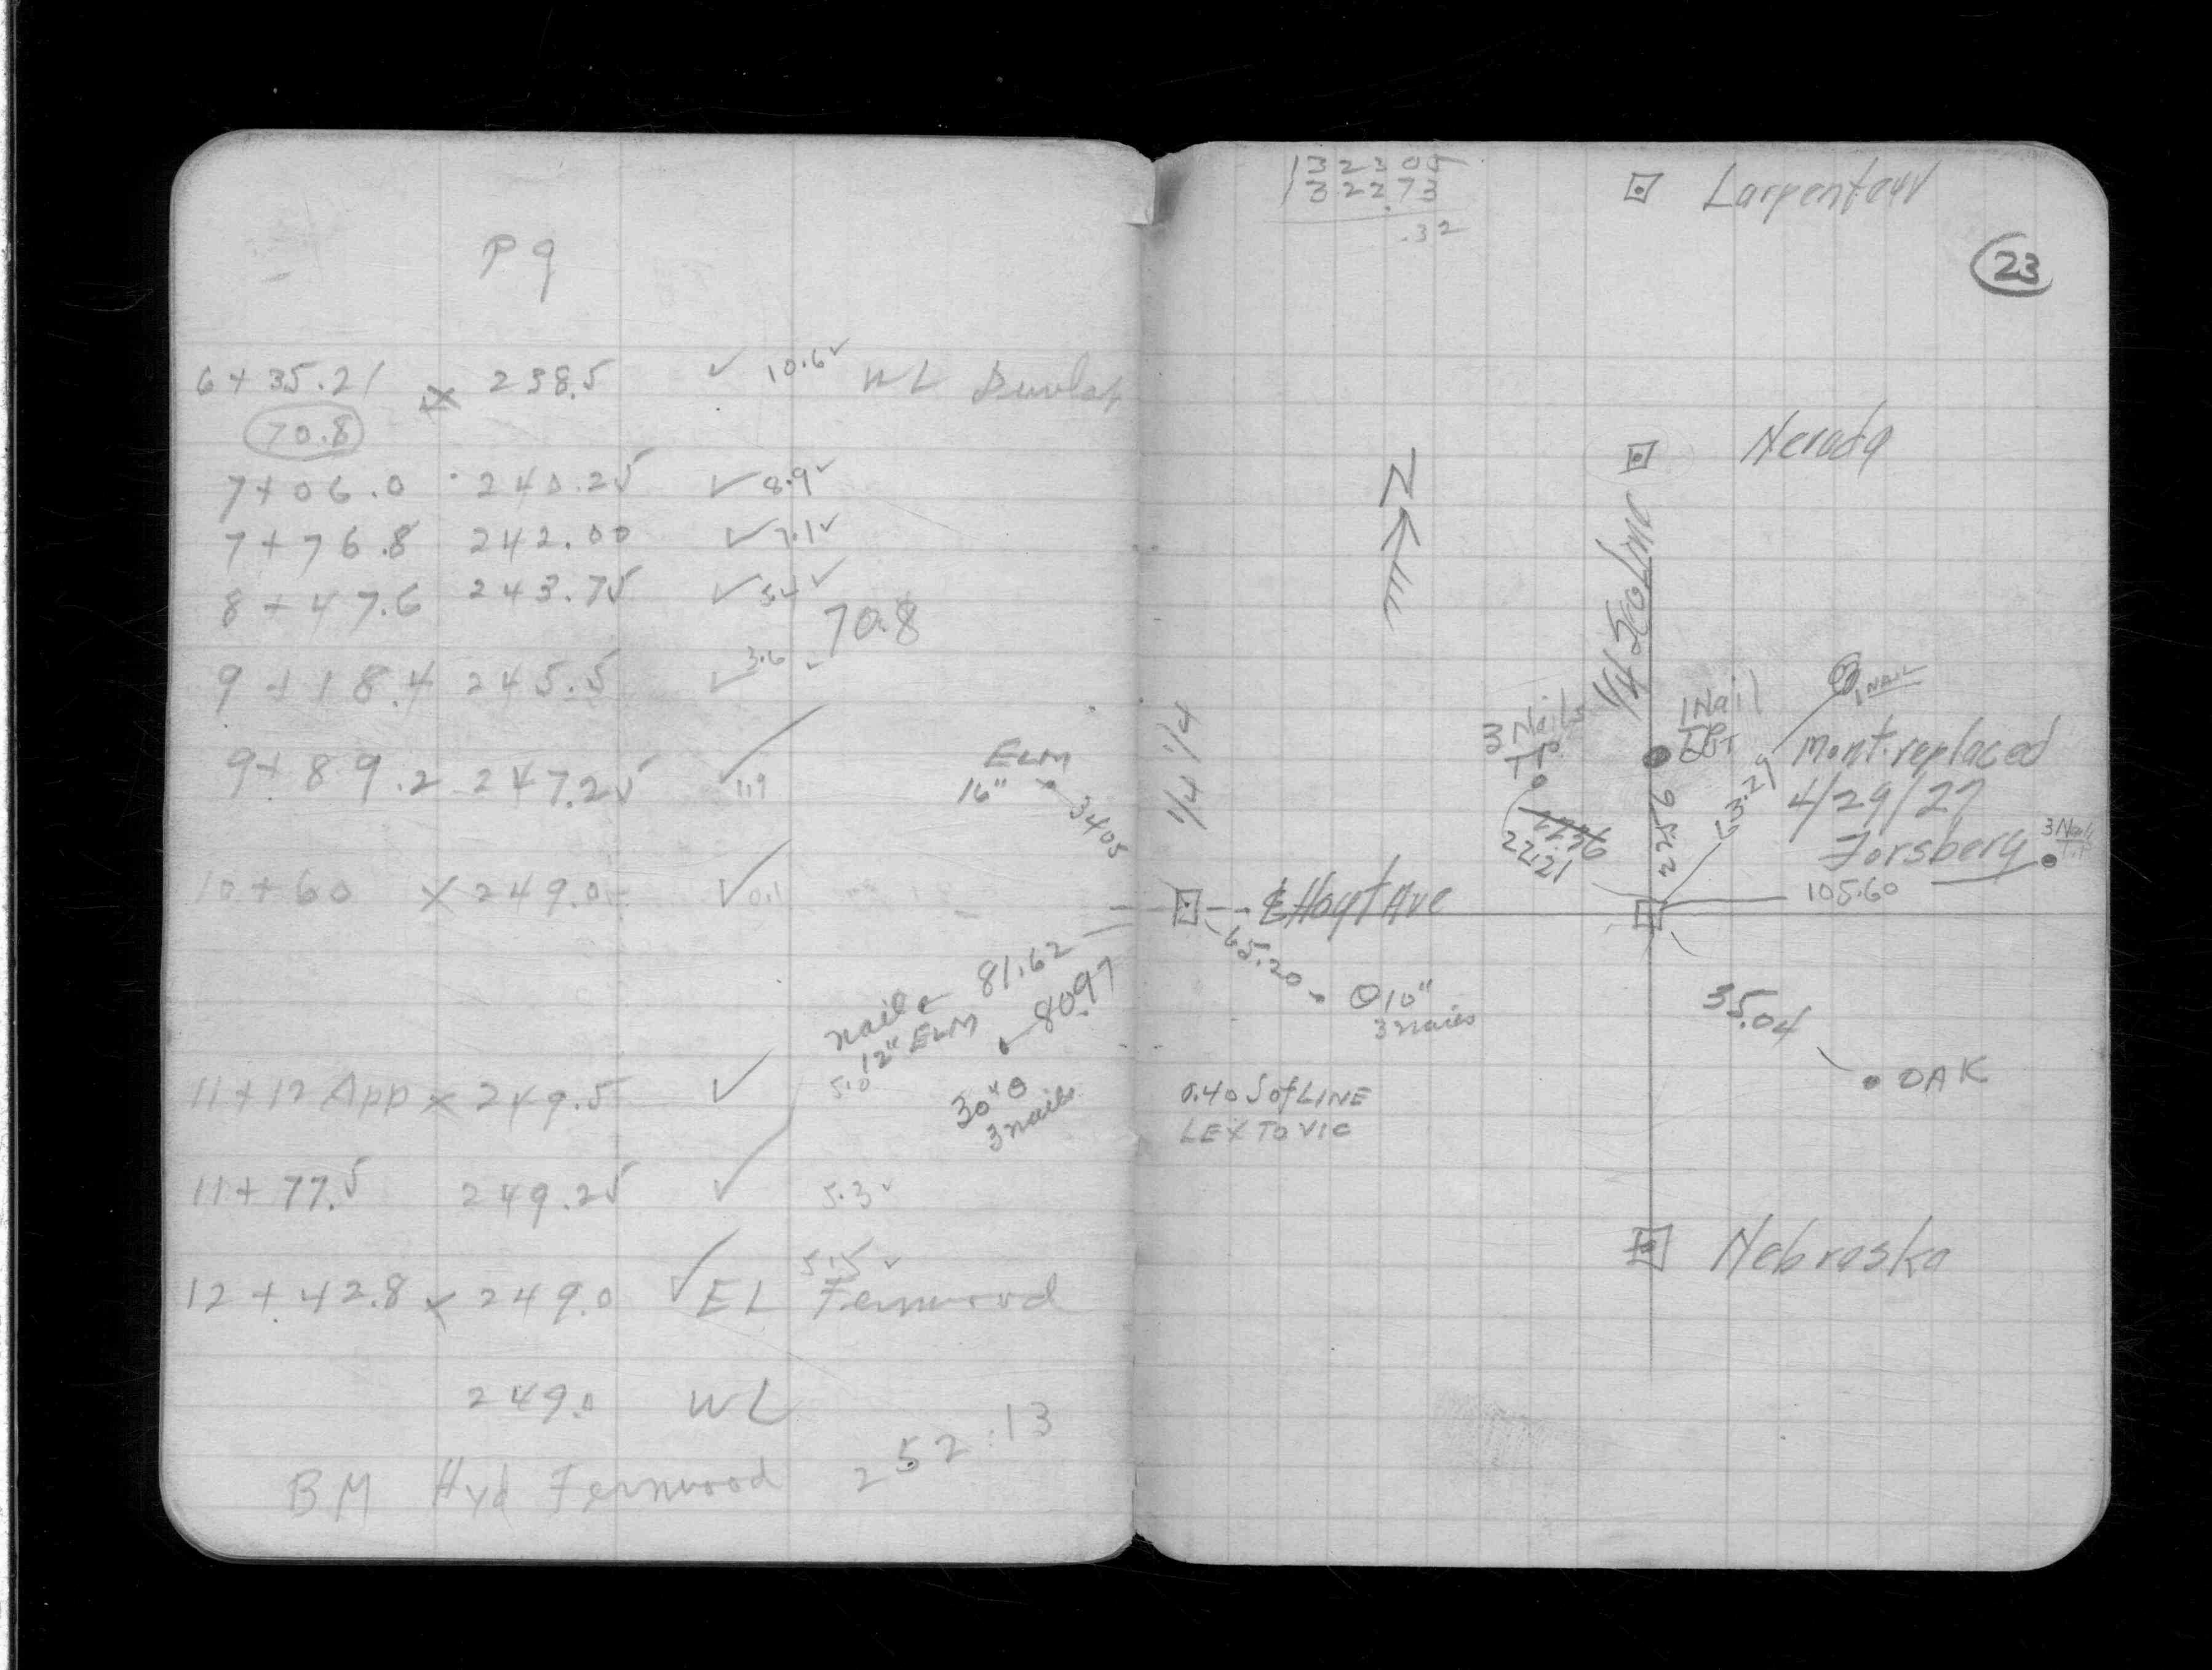 P 9
6+35.21 x 238.5 ✓ 10.6✓ WL Dunlap
70.8
7+06.0 240.25 ✓ 8.9✓
7+76.8 242.00 ✓ 7.1✓
8+47.6 243.75 ✓ 5.4✓
70.8
9+18.4 245.5 ✓ 3.6 ✓
9+89.2 247.25 ✓ 1.9
10+60 x 249.0 ✓ 0.1
ELM
16"
34.05
nail
12" ELM
81.62
80.97
30"
3 nails
11+12 App x 249.5 ✓ 5.0
11+77.5 249.25 ✓ 5.3✓
5.15 ✓
12+42.8 x 249.0 ✓ EL Fernwood
249.0 WL
BM Hyd Fernwood 252.13
1323.05
1322.73
.32
Larpenteur
23
Nevada
N
1/4 Sec Line
1/4 1/4
3 Nails
T.P.
22.21
1 Nail
22.56
63.29
1 NAIL
Mont. replaced
4/29/27
Forsberg
3 Nails
T.P.
105.60
℄ Hoyt Ave
65.20
10"
3 nails
35.04
OAK
0.40 S of LINE
LEX TO VIC
Nebraska